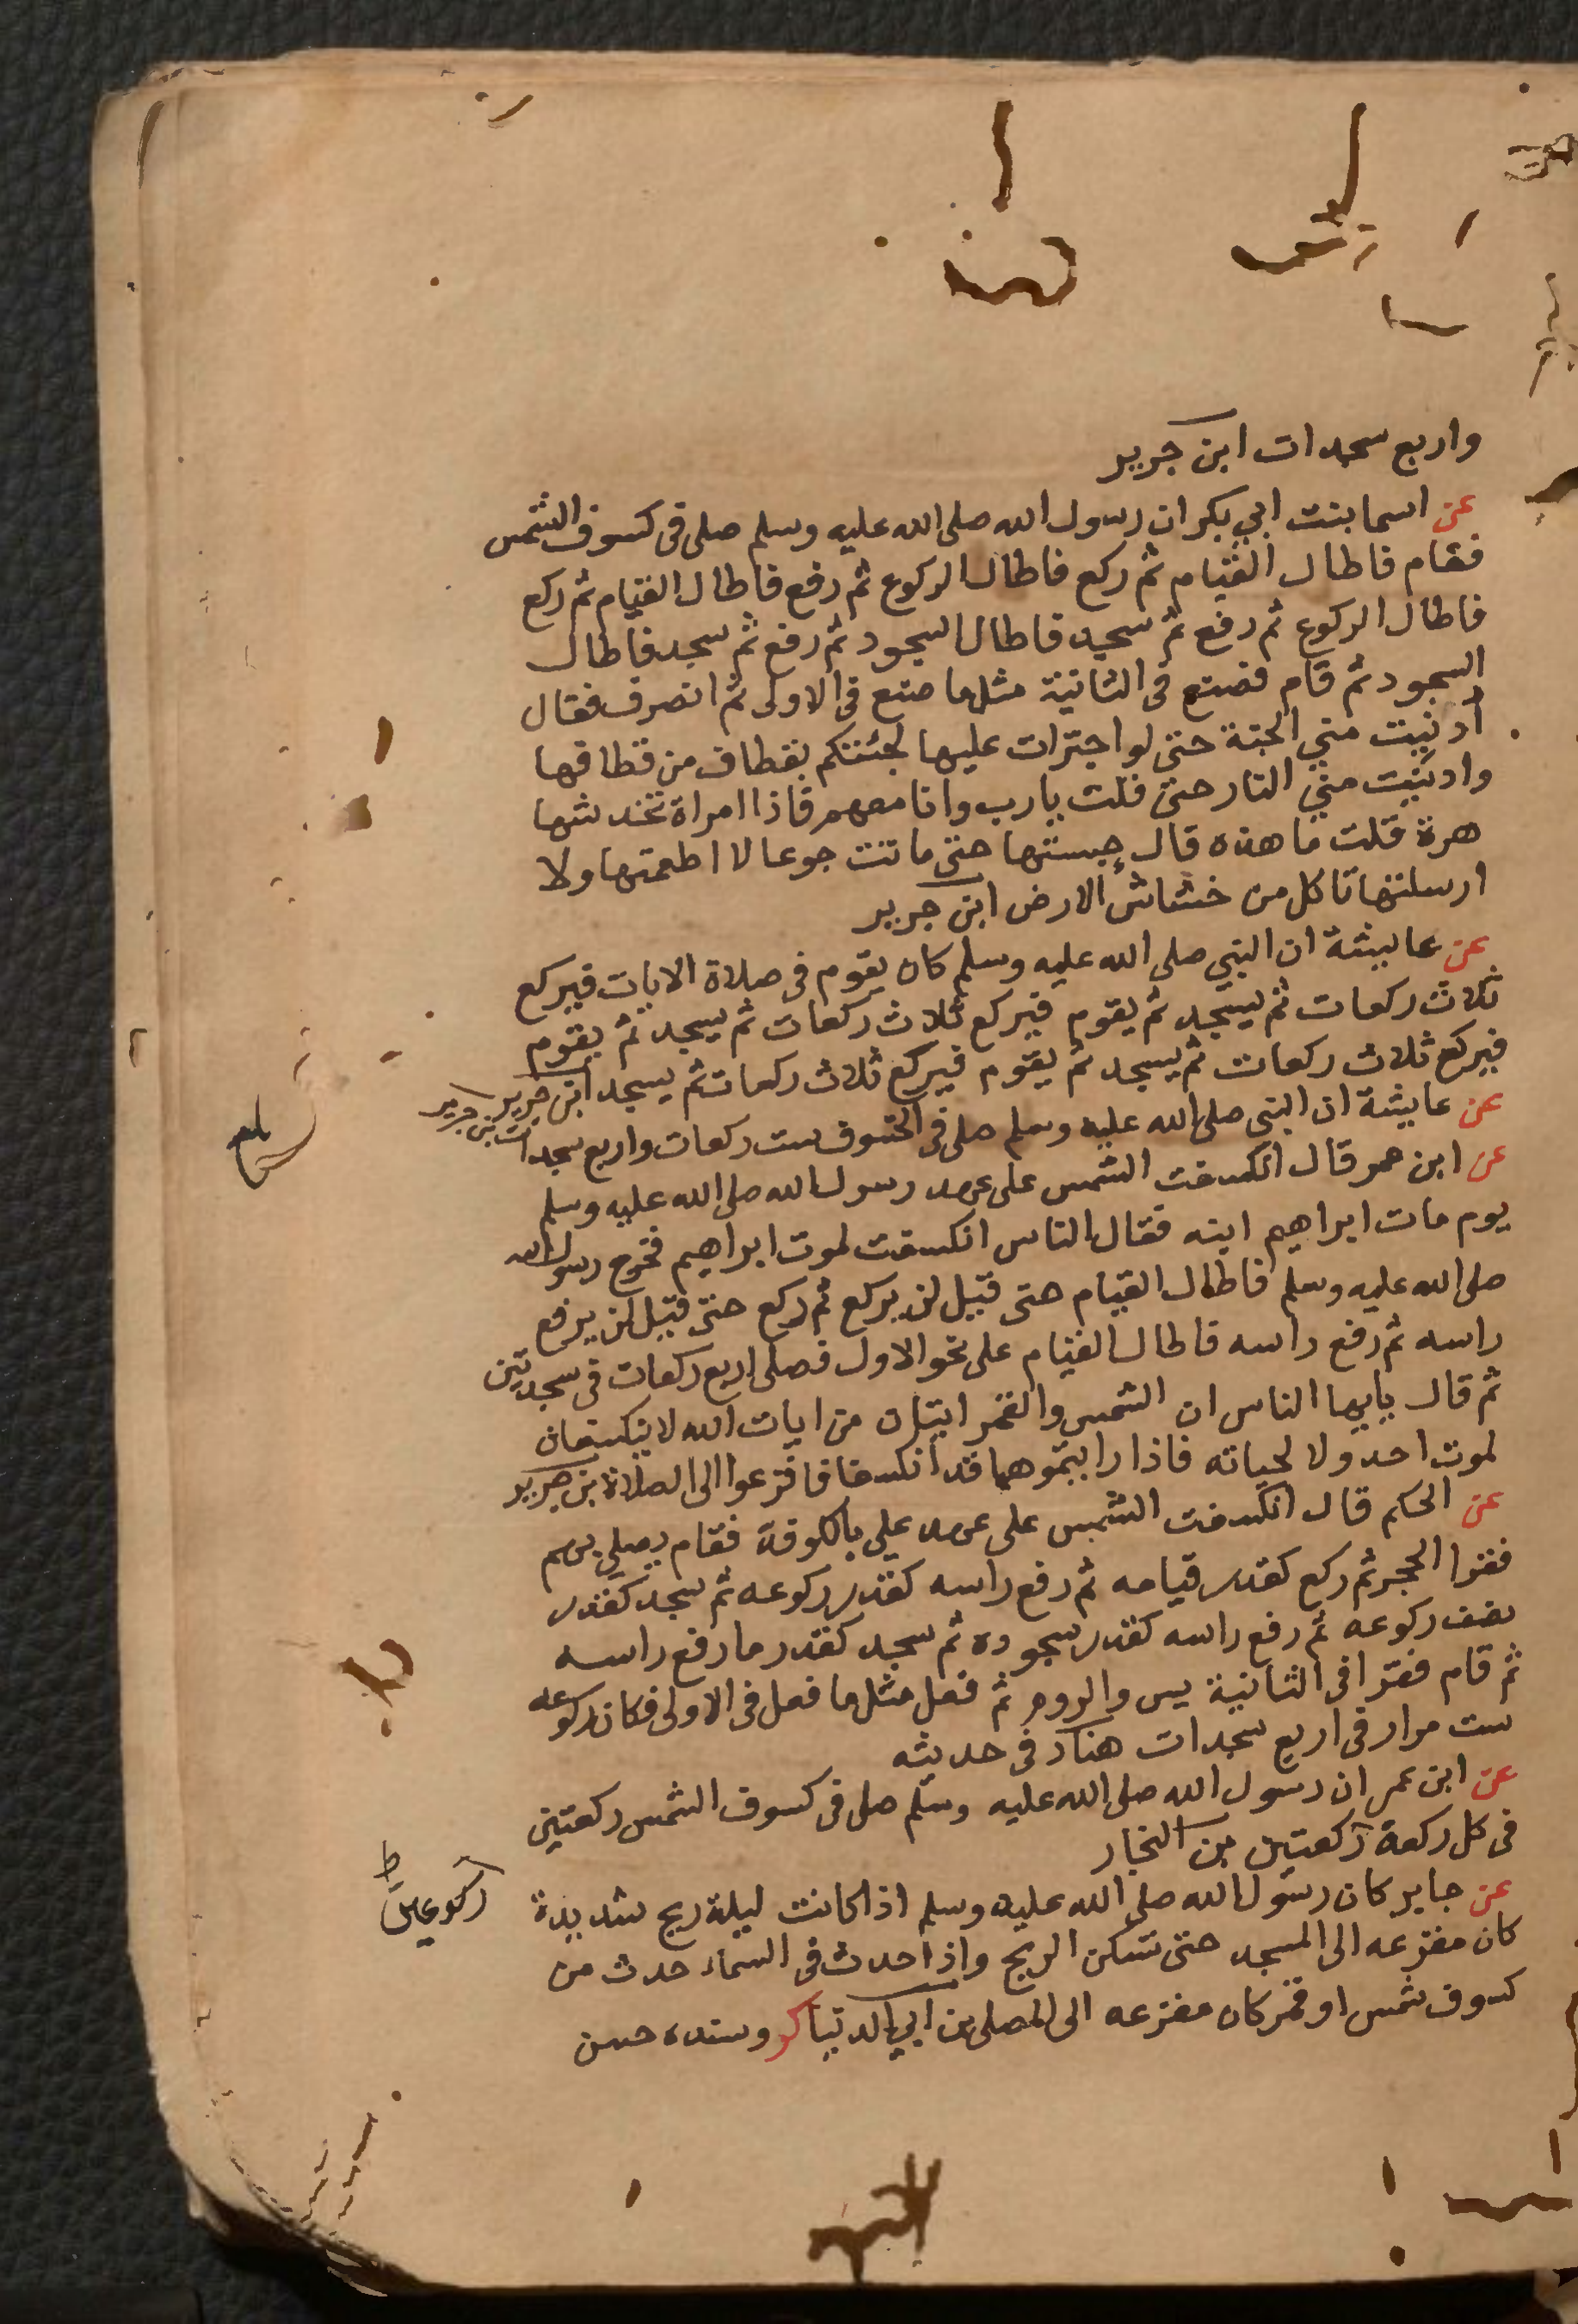 واربع سجدات ابن جرير
عن اسما بنت ابي بكر ان رسول الله صلى الله عليه وسلم صلى فى كسوف الشمس
فقام فاطال القيام ثم ركع فاطال الركوع ثم رفع فاطال القيام ثم ركع
فاطال الركوع ثم رفع ثم سجد فاطال السجود ثم رفع ثم سجد فاطال
السجود ثم قام فصنع فى الثانية مثل ما صنع فى الاولى ثم انصرف فقال
أدنيت مني الجنة حتى لو اجترات عليها لجئتكم بقطاف من قطافها
وادنيت مني النار حتى قلت يارب وانا معهم فاذا امراة تخدشها
هرة قلت ما هذه قال حبستها حتى ماتت جوعا لا اطعمتها ولا
ارسلتها تاكل من خشاش الارض ابن جرير
عن عايشة ان النبي صلى الله عليه وسلم كان يقوم فى صلاة الايات فيركع
ثلاث ركعات ثم يسجد ثم يقوم فيركع ثلاث ركعات ثم يسجد ثم يقوم
فيركع ثلاث ركعات ثم يسجد ثم يقوم فيركع ثلاث ركعات ثم يسجد ابن جرير
عن عايشة ان النبي صلى الله عليه وسلم صلى فى الخسوف ست ركعات واربع سجدات بن جرير
عن ابن عمر قال انكسفت الشمس على عهد رسول الله صلى الله عليه وسلم
يوم مات ابراهيم ابنه فقال الناس انكسفت لموت ابراهيم فخرج رسول الله
صلى الله عليه وسلم فاطال القيام حتى قيل لن يركع ثم ركع حتى قيل لن يرفع
راسه ثم رفع راسه فاطال القيام على نحو الاول فصلى اربع ركعات فى سجدتين
ثم قال يايها الناس ان الشمس والقمر ايتان من ايات الله لا ينكسفان
لموت احد ولا لحياته فاذا رايتموهما قد انكسفا فافزعوا الى الصلاة بن جرير
عن الحكم قال انكسفت الشمس على عهد علي بالكوفة فقام يصلي بهم
فقرا الحجر ثم ركع كقدر قيامه ثم رفع راسه كقدر ركوعه ثم سجد كقدر
نصف ركوعه ثم رفع راسه كقدر سجوده ثم سجد كقدر ما رفع راسه
ثم قام فقرا فى الثانية يس والروم ثم فعل مثل ما فعل فى الاولى فكان ركوعه
ست مرار فى اربع سجدات هناد فى حديثه
عن ابن عمر ان رسول الله صلى الله عليه وسلم صلى فى كسوف الشمس ركعتين
فى كل ركعة ركعتين بن النجار
ركوعين ط
عن جابر كان رسول الله صلى الله عليه وسلم اذا كانت ليلة ريح شديدة
كان مفزعه الى المسجد حتى تسكن الريح واذا حدث فى السماء حدث من
كسوف شمس او قمر كان مفزعه الى المصلى بن ابي الدنيا كر وسنده حسن